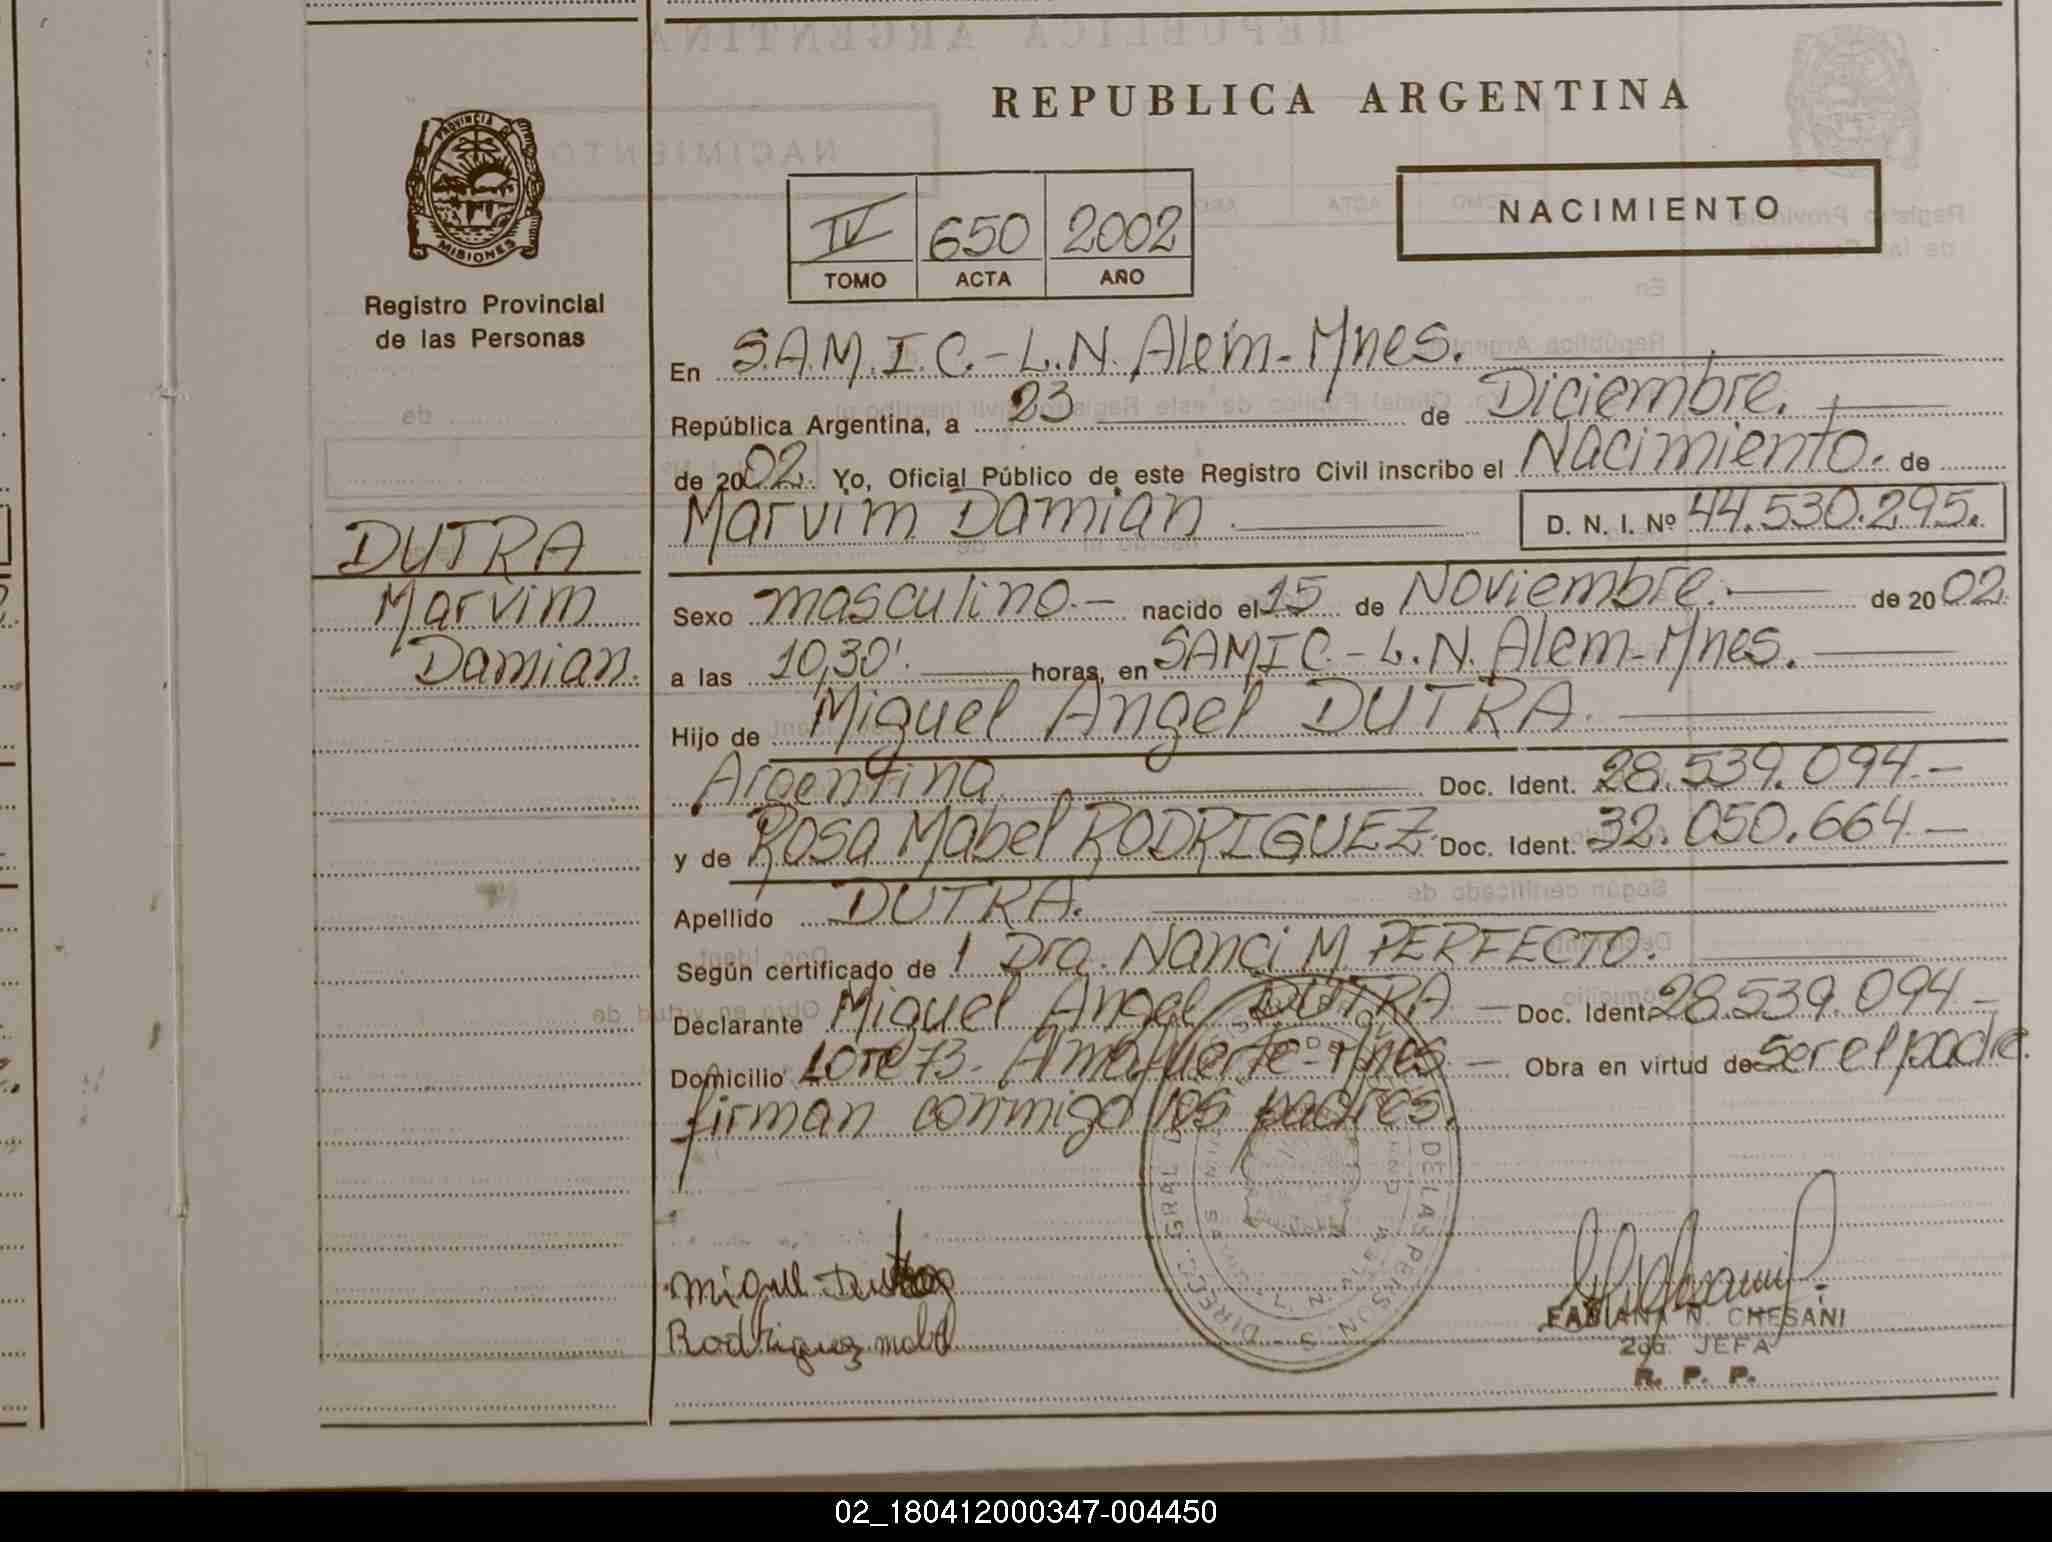 REPUBLICA ARGENTINA
PROVINCIA DE
MISIONES
Registro Provincial
de las Personas
NACIMIENTO
IV 650 2002
TOMO ACTA AÑO
En S.A.M.I.C.-L.N. Alem-Mnes.
República Argentina, a 23 de Diciembre.
de 2002. Yo, Oficial Público de este Registro Civil inscribo el Nacimiento. de
Marvim Damian D. N. I. Nº 44.530.295.
DUTRA
Marvim
Damian.
Sexo masculino.- nacido el 15 de Noviembre. de 2002.
a las 10,30'. horas, en SAMIC.-L.N. Alem-Mnes.
Hijo de Miguel Angel DUTRA.
Argentina Doc. Ident. 28.539.094.-
y de Rosa Mabel RODRIGUEZ. Doc. Ident. 32.050.664.-
Apellido DUTRA.
Según certificado de 1 Dra. Nanci M. PERFECTO.
Declarante Miguel Angel DUTRA - Doc. Ident. 28.539.094.-
Domicilio Lote 73- Almafuerte-Mnes - Obra en virtud de Ser el padre.
firman conmigo los padres.
DE LAS PERSONAS
Miguel Dutra
Rodriguez mabel
FABIANA N. CHESANI
2da. JEFA
R. P. P.
02_180412000347-004450